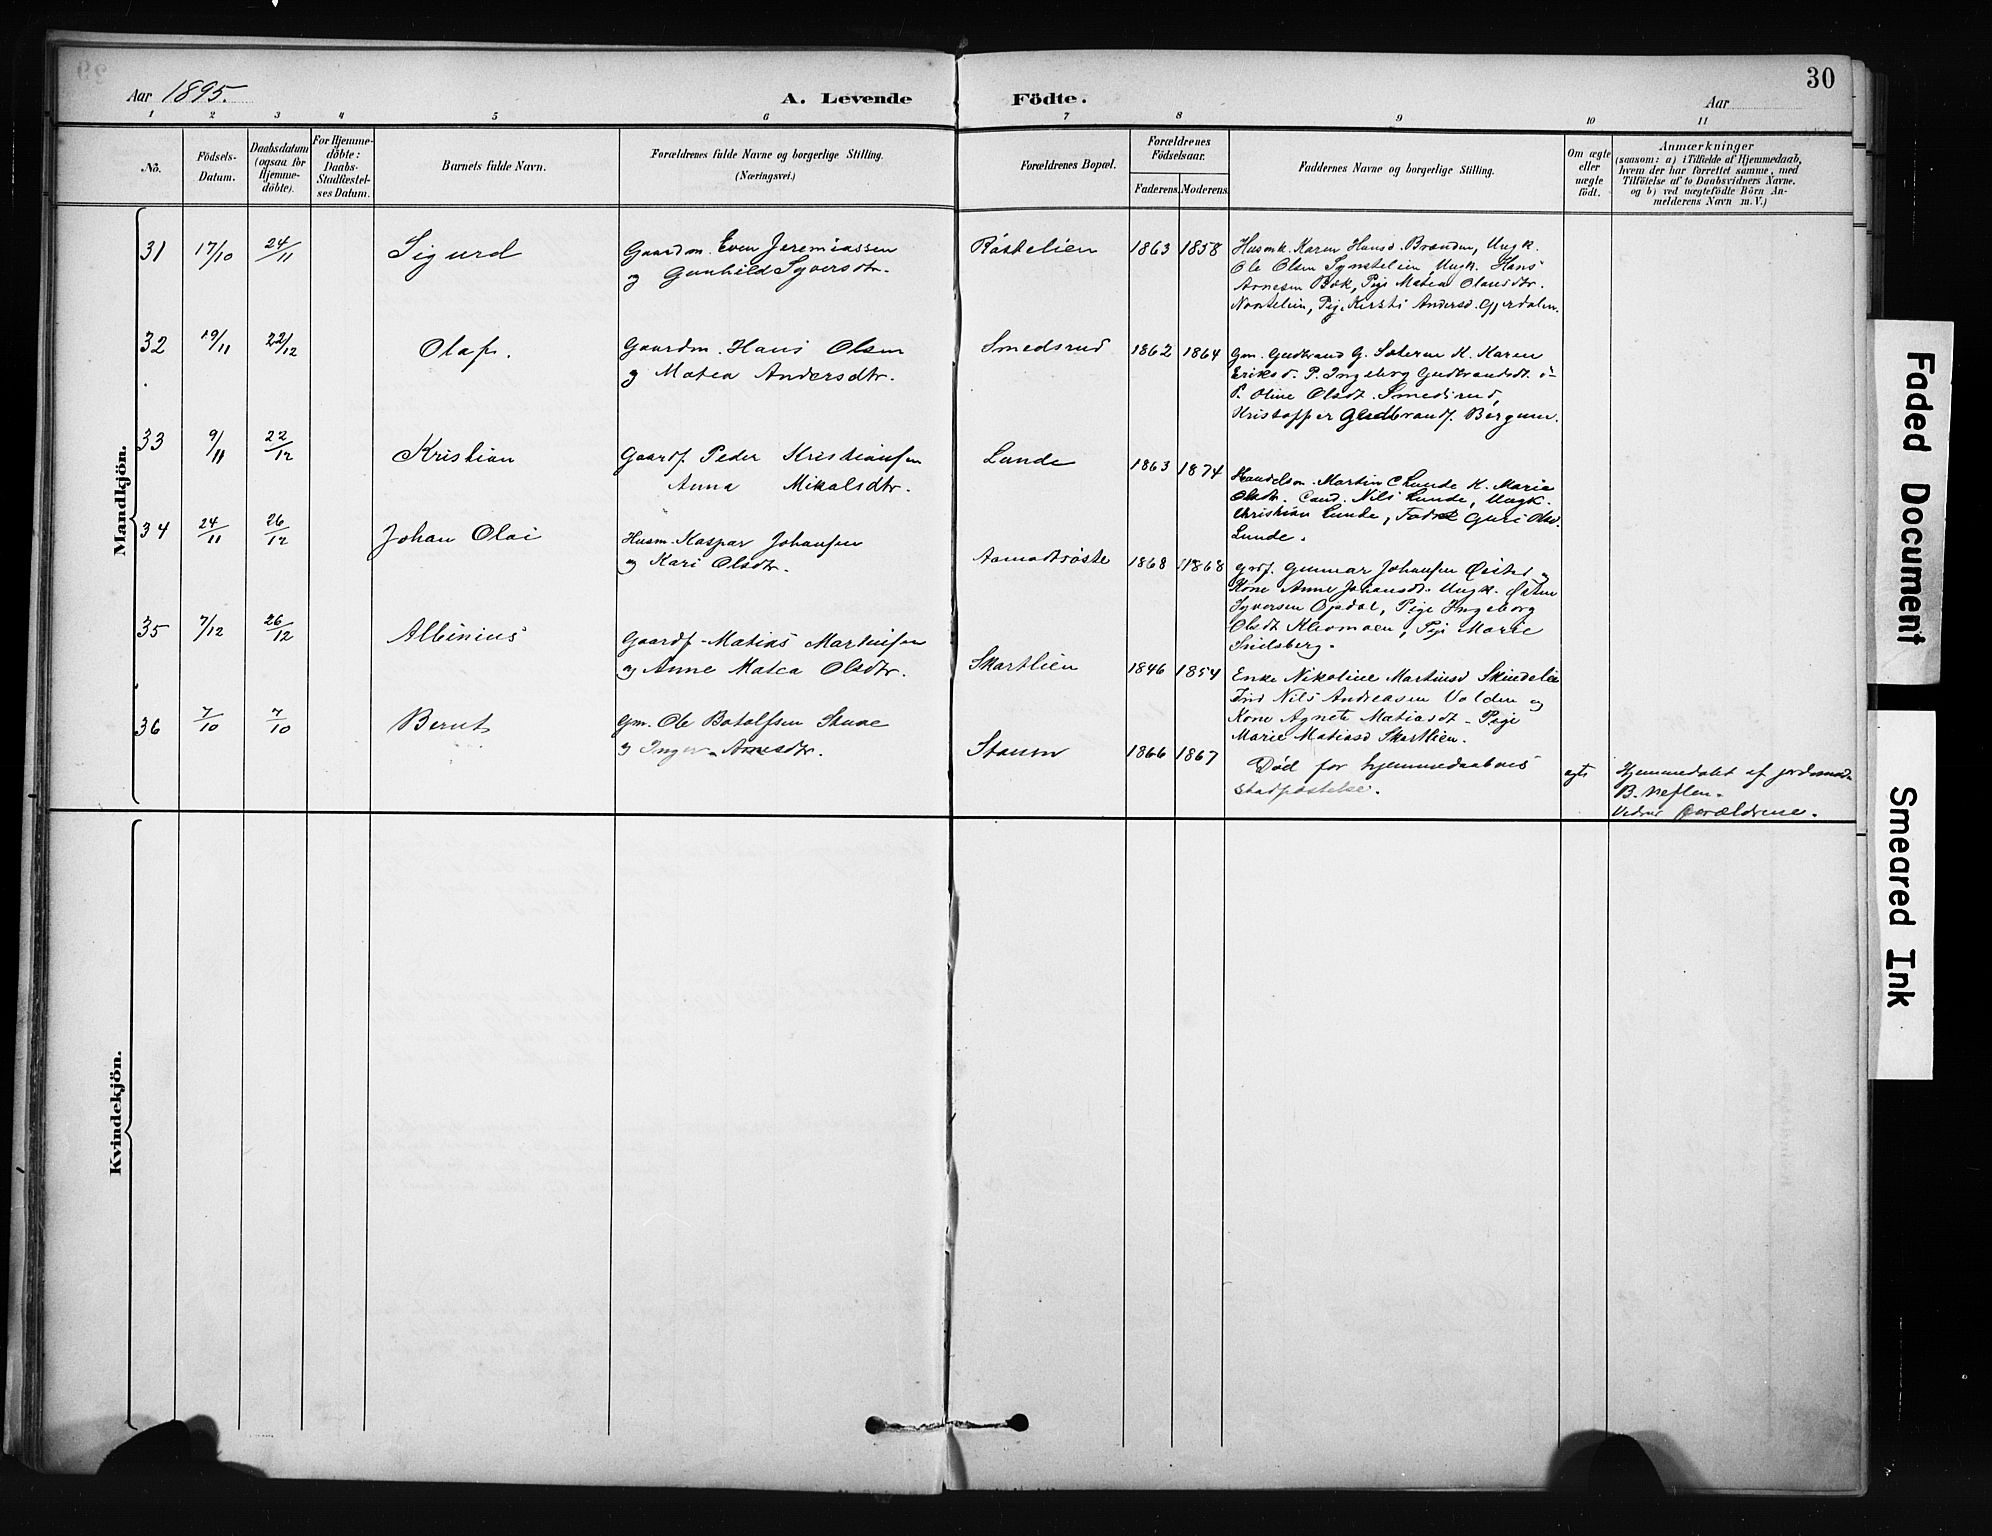 30
Aar 1895.
A. Levende Födte.
Aar
1 2 3 4 5 6 7 8 9 10 11
No.
Födsels-Datum.
Daabsdatum (ogsaa for Hjemme-döbte).
For Hjemme-döbte: Daabs-Stadfæstel-ses Datum.
Barnets fulde Navn.
Forældrenes fulde Navne og borgerlige Stilling.
(Næringsvei.)
Forældrenes Bopæl.
Forældrenes Födselsaar.
Faderens. Moderens.
Faddernes Navne og borgerlige Stilling.
Om ægte eller uægte födt.
Anmærkninger
(saasom: a) i Tilfælde af Hjemmedaab,
hvem der har forrettet samme, med
Tilföielse af to Daabsvidners Navne,
og b) ved uægtefödte Börn An-
melderens Navn m. V.)
Mandkjön.
31 17/10 24/11 Sigurd Gaardm. Even Jeremiassen
og Gunhild Syversdtr.
Røstelien 1863 1858
Husmk. Karen Hansd. Brenden, Ungk.
Ole Olsen Synstelien, Ungk. Hans
Arnesen Bak, Pige Matea Olausdtr.
Nordtelien, Pig. Kersti Andersd. Gjerdalen.
32 19/11 22/12 Olaf. Gaardm. Hans Olsen
og Matea Andersdtr.
Smedsrud 1862 1864
Gm. Gudbrand G. Sæteren K. Karen
Eriksd. P. Ingeborg Gudbrandsdt. o
P. Oline Olsdt. Smedsrud,
Kristoffer Gudbrands. Bergum.
33 9/11 22/12 Kristian Gaardf. Peder Kristiansen
Anna Mikalsdtr.
Lunde 1863 1874
Handelsm. Martin C Lunde K. Marie
Olsdtr. Cand. Nils Lunde, Ungk.
Christian Lunde, Guri Olsd.
Lunde.
34 24/11 26/12 Johan Olai Husm. Kaspar Johansen
og Kari Olsdtr.
1868 1868
Grdf. Gunnar Johansen og
Kone Anne Johansdt. Ungk. Østen
Syversen Opdal, Pige Ingeborg
Olsdt Klevmoen, Pige Marie
35 7/12 26/12 Albinius Gaardf. Matias Martinsen
og Anne Matea Olsdtr.
Skartlien 1846 1854
Enke Nikoline Martinsd
Ind Nils Andreasen Volden og
Kone Agnete Matiasdt. Pige
Marie Matiasd Skartlien.
36 7/10 7/10 Bernt Gm. Ole Botolfsen
og Inger Arnesdtr.
1866 1867
Død for hjemmedaabens
stadfæstelse.
egte
Hjemmedøbt af jordemod.
B. Neflen.
Vidner forældrene.
Kvindekjön.
Faded Document
Smeared Ink